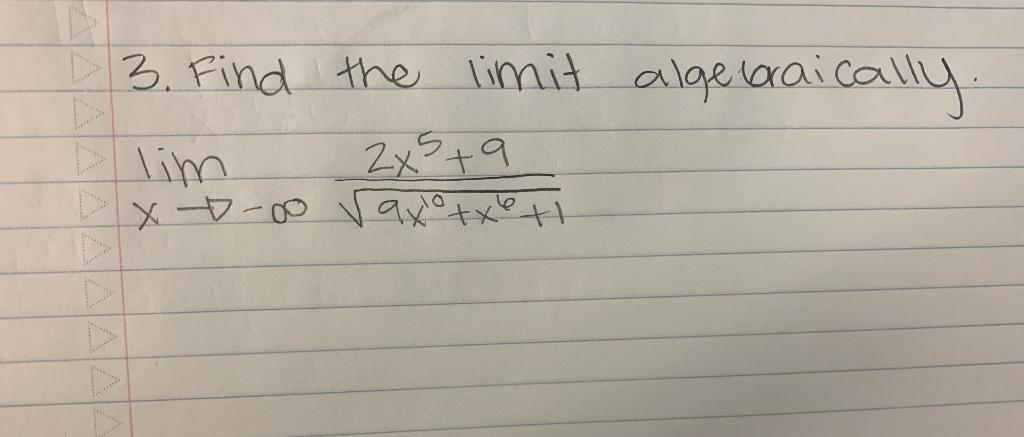 3. Find the limit algebraically.
lim 2x⁵+9
x→-∞ √9x¹⁰+x⁶+1